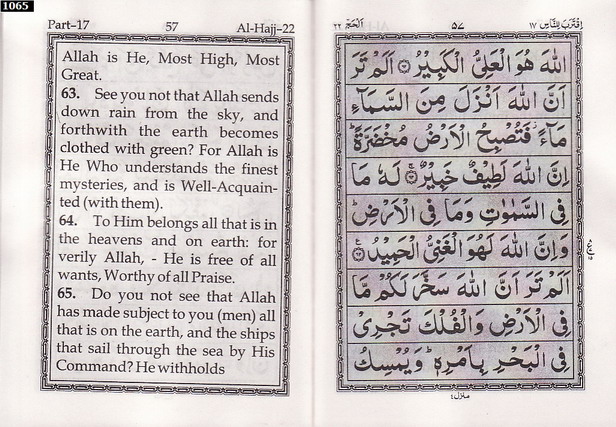 1065
Part–17 57 Al-Hajj–22
Allah is He, Most High, Most
Great.
63. See you not that Allah sends
down rain from the sky, and
forthwith the earth becomes
clothed with green? For Allah is
He Who understands the finest
mysteries, and is Well-Acquain-
ted (with them).
64. To Him belongs all that is in
the heavens and on earth: for
verily Allah, - He is free of all
wants, Worthy of all Praise.
65. Do you not see that Allah
has made subject to you (men) all
that is on the earth, and the ships
that sail through the sea by His
Command? He withholds
اِقْتَرَبَ لِلنَّاسِ ١٧ ٥٧ اَلْحَجّ ٢٢
اللّٰهَ هُوَ الْعَلِیُّ الْكَبِیْرُ ﴿٦٢﴾ اَلَمْ تَرَ
اَنَّ اللّٰهَ اَنْزَلَ مِنَ السَّمَآءِ
مَآءً ۡ فَتُصْبِحُ الْاَرْضُ مُخْضَرَّةً ؕ
اِنَّ اللّٰهَ لَطِیْفٌ خَبِیْرٌ ﴿٦٣﴾ لَهٗ مَا
فِی السَّمٰوٰتِ وَمَا فِی الْاَرْضِ ؕ
وَاِنَّ اللّٰهَ لَهُوَ الْغَنِیُّ الْحَمِیْدُ ﴿٦٤﴾
اَلَمْ تَرَ اَنَّ اللّٰهَ سَخَّرَ لَكُمْ مَّا
فِی الْاَرْضِ وَالْفُلْكَ تَجْرِیْ
فِی الْبَحْرِ بِاَمْرِهٖ ؕ وَیُمْسِكُ